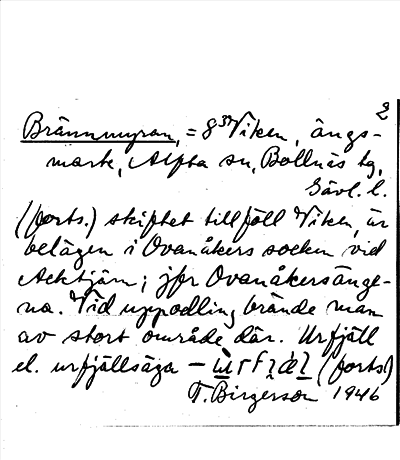 2
Brännmyran, = 8 3 Viken, ängs-
mark, Alfta sn, Bollnäs tg,
Gävl. l.
(forts.) skiftet tillföll Viken, är
belägen i Ovanåkers socken vid
Acktjärn; jfr Ovanåkersänge-
na. Vid uppodling brände man
av stort område där. Urfjäll
el. urfjällsäga – (forts.)
T. Birgerson 1946